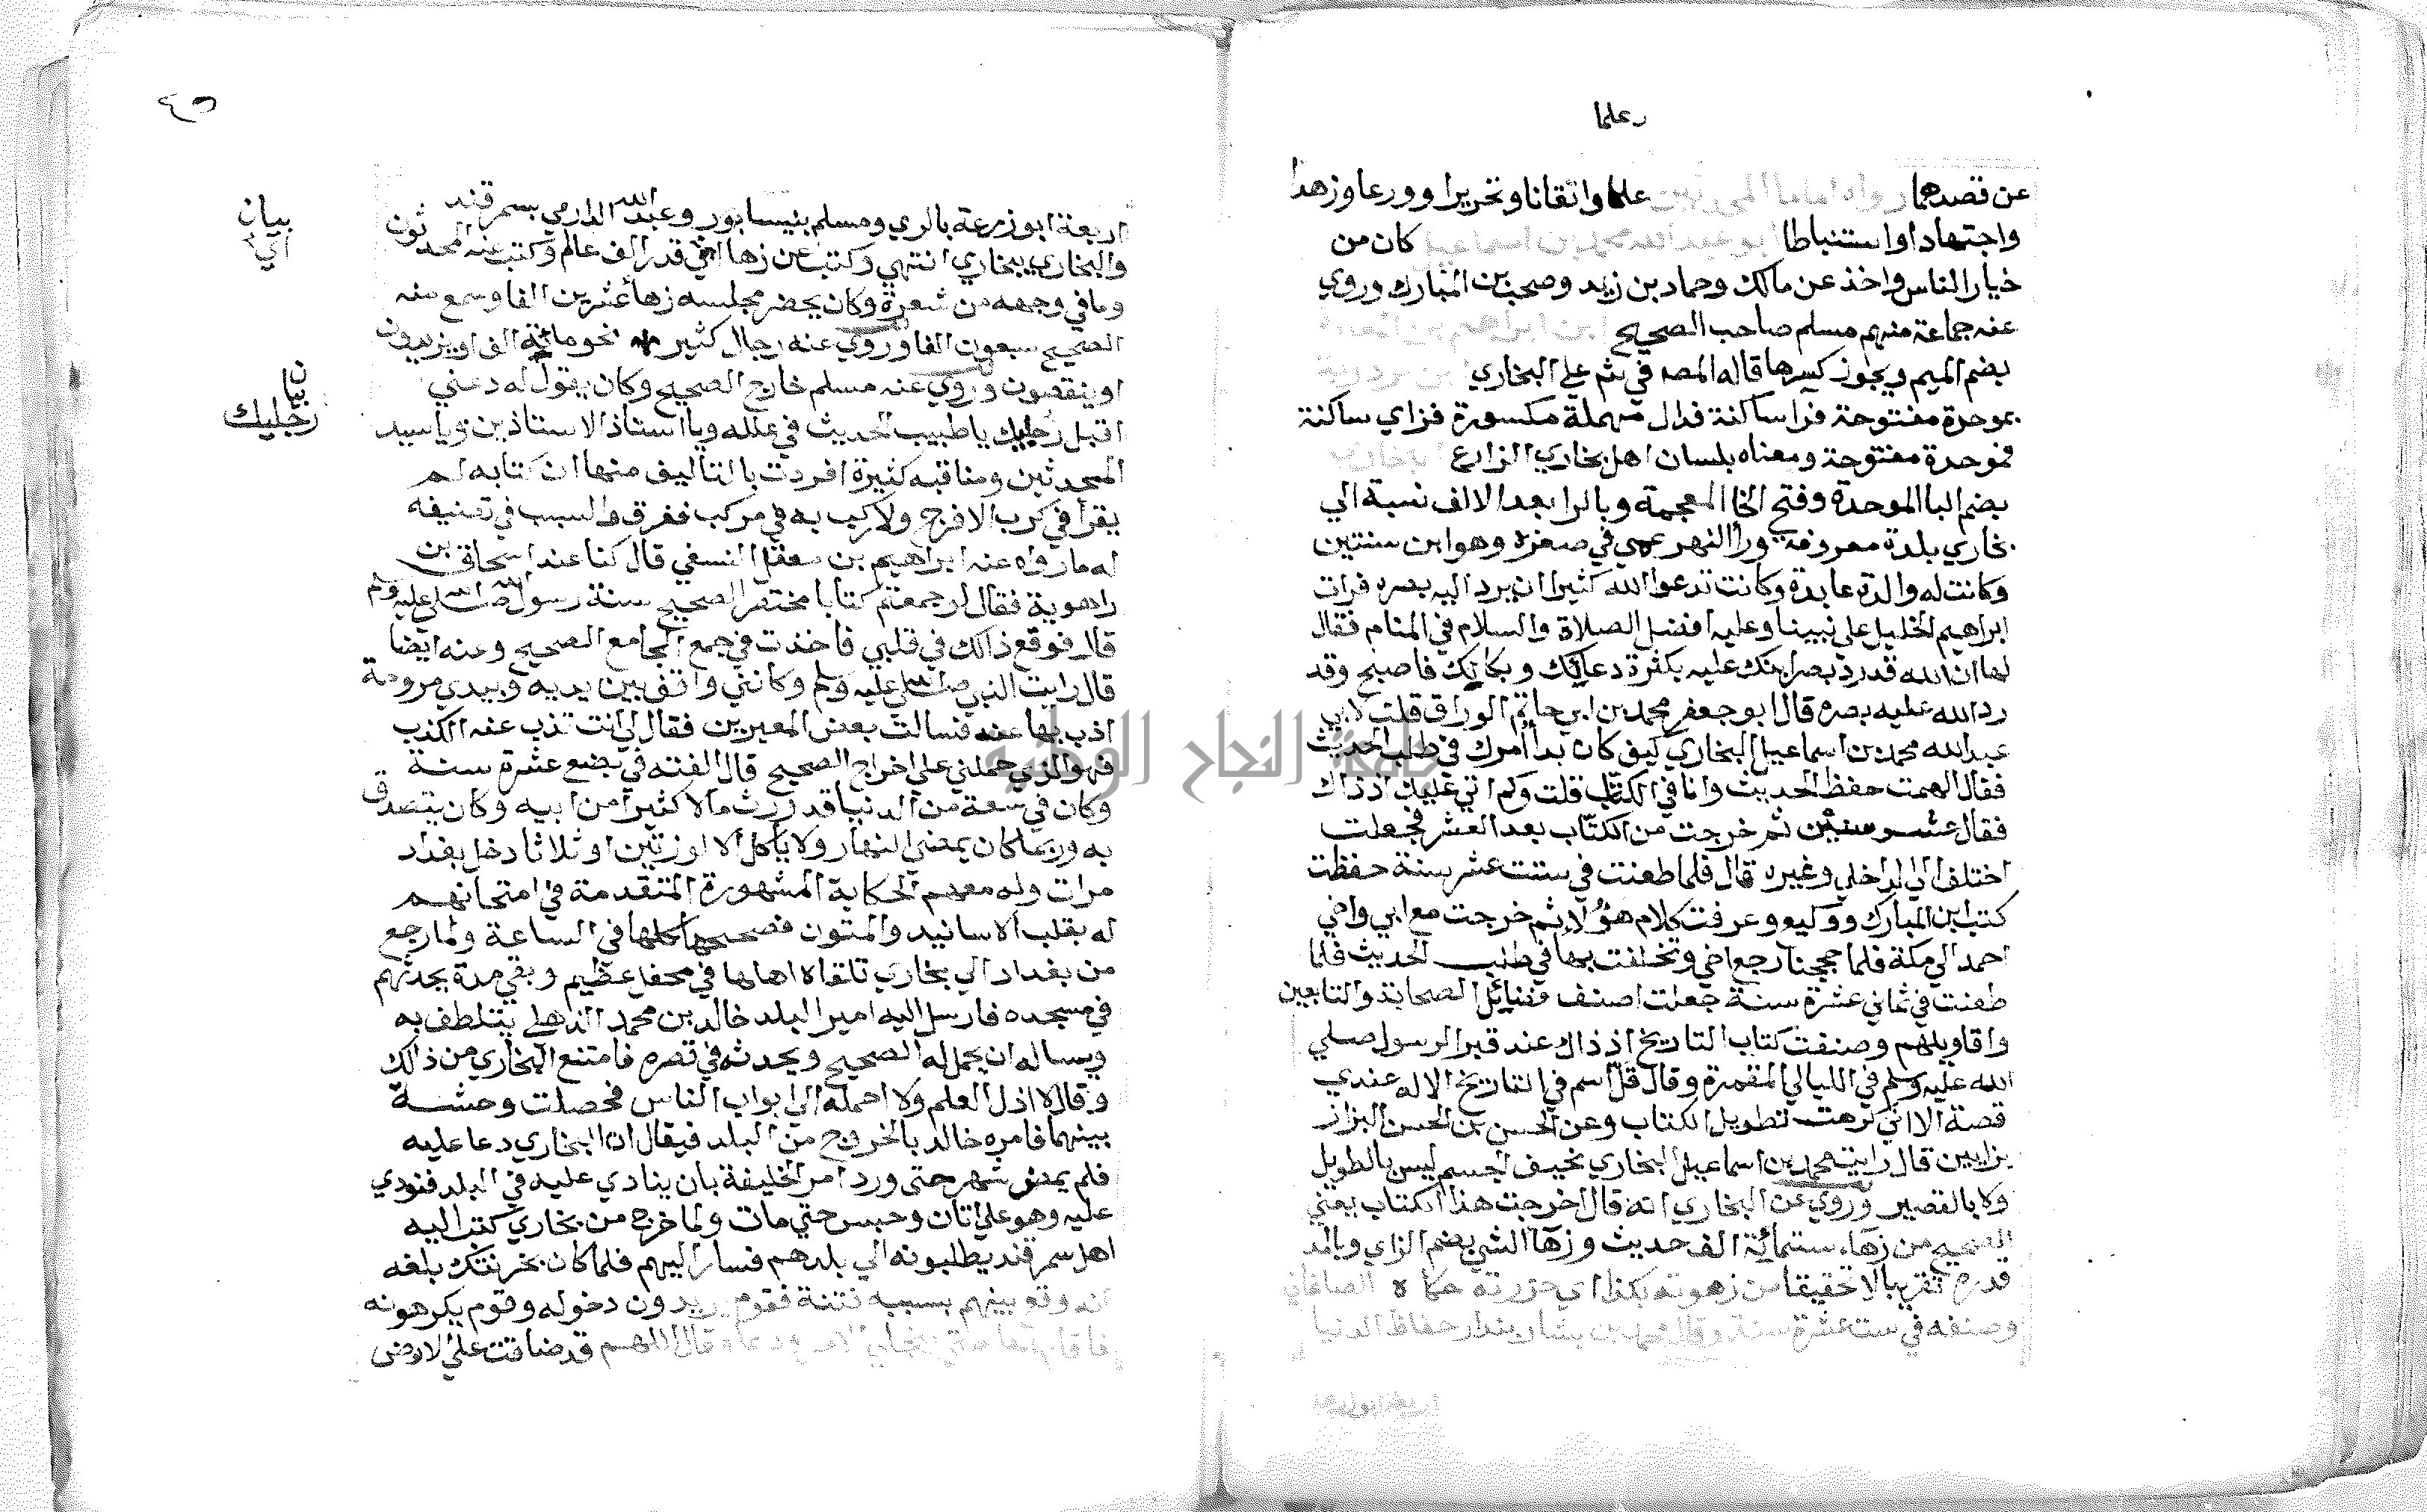 علما
عن قصدهما علما واتقانا وتحريرا وورعا وزهدا
واجتهادا واستنباطا كان من
خيار الناس واخذ عن مالك وحماد بن زيد وصحب بن المبارك وروي
عنه جماعة منهم مسلم صاحب الصحيح
بضم الميم ويجوز كسرها قاله المصـ في ثم علي البخاري
بموحدة مفتوحة فرا ساكنة فدال مهملة مكسورة فزاي ساكنة
فموحدة مفتوحة ومعناه بلسان اهل بخاري الزارع
بضم البا الموحدة وفتح الخا المعجمة وبالرا بعد الالف نسبة الي
بخاري بلدة معروفة ورا النهر عمي في صغره وهو ابن سنتين
وكانت له والدة عابدة وكانت تدعوا الله كثيرا ان يرد اليه بصره فرات
ابراهيم الخليل علي نبينا وعليه افضل الصلاة والسلام في المنام فقال
لها ان الله قد رد بصر ابنك عليه بكثرة دعائك وبكائك فاصبح وقد
رد الله عليه بصره قال ابو جعفر محمد بن ابي حاتم الوراق قلت لابي
عبد الله محمد بن اسماعيل البخاري كيف كان بدأ أمرك في طلب الحديث
فقال الهمت حفظ الحديث وانا في الكتاب قلت وكم اتي عليك اذ ذاك
فقال عشر سنين ثم خرجت من الكتاب بعد العشر فجعلت
اختلف الي الداخلي وغيره قال فلما طعنت في ستت عشر سنة حفظت
كتب ابن المبارك ووكيع وعرفت كلام هؤلاء ثم خرجت مع ابي واخي
احمد الي مكة فلما حججنا رجع اخي وتخلفت بها في طلب الحديث فلما
طعنت في ثماني عشرة سنة جعلت اصنف فضائل الصحابة والتابعين
واقاويلهم وصنفت كتاب التاريخ اذ ذاك عند قبر الرسول صلي
الله عليه وسلم في الليالي المقمرة وقال قل اسم في التاريخ الا له عندي
قصة الا اني كرهت تطويل الكتاب وعن الحسن بن الحسن البزاز
بزايين قال رايت محمد بن اسماعيل البخاري نحيف الجسم ليس بالطويل
ولا بالقصير وروي عن البخاري انه قال اخرجت هذا الكتاب يعني
الصحيح من زهاء ستمائة الف حديث وزهآ الشي بضم الزاي وبالمد
قدره تقريبا لا تحقيقا من زهوته بكذا اي حزرته حكاه الصاغاني
وصنفه في ست عشرة سنة وقال محمد بن بشار بندار حفاظ الدنيا
اربعة ابو زرعة بالري ومسلم بنيسابور وعبد الله الدارمي بسمرقند
والبخاري ببخاري انتهي وكتب عن زها الف في قدر الف عالم وكتب عنه المحدثون
وما في وجهه من شعرة وكان يحضر مجلسه زهأ عشرين الفا وسمع منه
الصحيح سبعون الفا وروي عنه رجال كثير نحو مائة الف او يزيدون
او ينقصون وروي عنه مسلم خارج الصحيح وكان يقول له دعني
اقبل رجليك يا طبيب الحديث في علله ويا استاذ الاستاذين ويا سيد
المحدثين ومناقبه كثيرة افردت بالتاليف منها ان كتابه لم
يقرأ في كرب الا فرج ولا ركب به في مركب فغرق والسبب في تصنيفه
له ما رواه عنه ابراهيم بن معقل النسفي قال كنا عند اسحاق بن
راهوية فقال لو جمعتم كتابا مختصر الصحيح سنة رسول الله صلي الله عليه وسلم
قال فوقع ذالك في قلبي فاخذت في جمع الجامع الصحيح وعنه ايضا
قال رايت النبي صلي الله عليه وسلم وكانني واقف بين يديه وبيدي مروحة
اذب بها عنه فسالت بعض المعبرين فقال لي انت تذب عنه الكذب
فهو الذي حملني علي اخراج الصحيح قال الفته في بضع عشرة سنة
وكان في سعة من الدنيا قد ورث مالا كثيرا من ابيه وكان يتصدق
به وربما كان يمضي النهار ولا ياكل الا لوزتين او ثلاثا دخل بغداد
مرات وله معهم الحكاية المشهورة المتقدمة في امتحانهم
له بقلب الاسانيد والمتون فصححها كلها في الساعة ولما رجع
من بغداد الي بخاري تلقاه اهلها في محفل عظيم وبقي مدة يحدثهم
في مسجده فارسل اليه امير البلد خالد بن محمد الذهلي يتلطف به
ويساله ان يحمل له الصحيح ويحدثه في قصره فامتنع البخاري من ذالك
وقال لا اذل العلم ولا احمله الي ابواب الناس فحصلت وحشة
بينهما فامره خالد بالخروج من البلد فيقال ان البخاري دعا عليه
فلم يمض شهر حتى ورد امر الخليفة بان ينادي عليه في البلد فنودي
عليه وهو علي اتان وحبس حتي مات ولما خرج من بخاري كتب اليه
اهل سمرقند يطلبونه الي بلدهم فسار اليهم فلما كان بخرتنك بلغه
انه وقع بينهم بسببه فتنة فقوم يريدون دخوله وقوم يكرهونه
قال اللهم قد ضاقت علي الارض
بيان
اي
بيان
رجليك
جامعة النجاح الوطنية